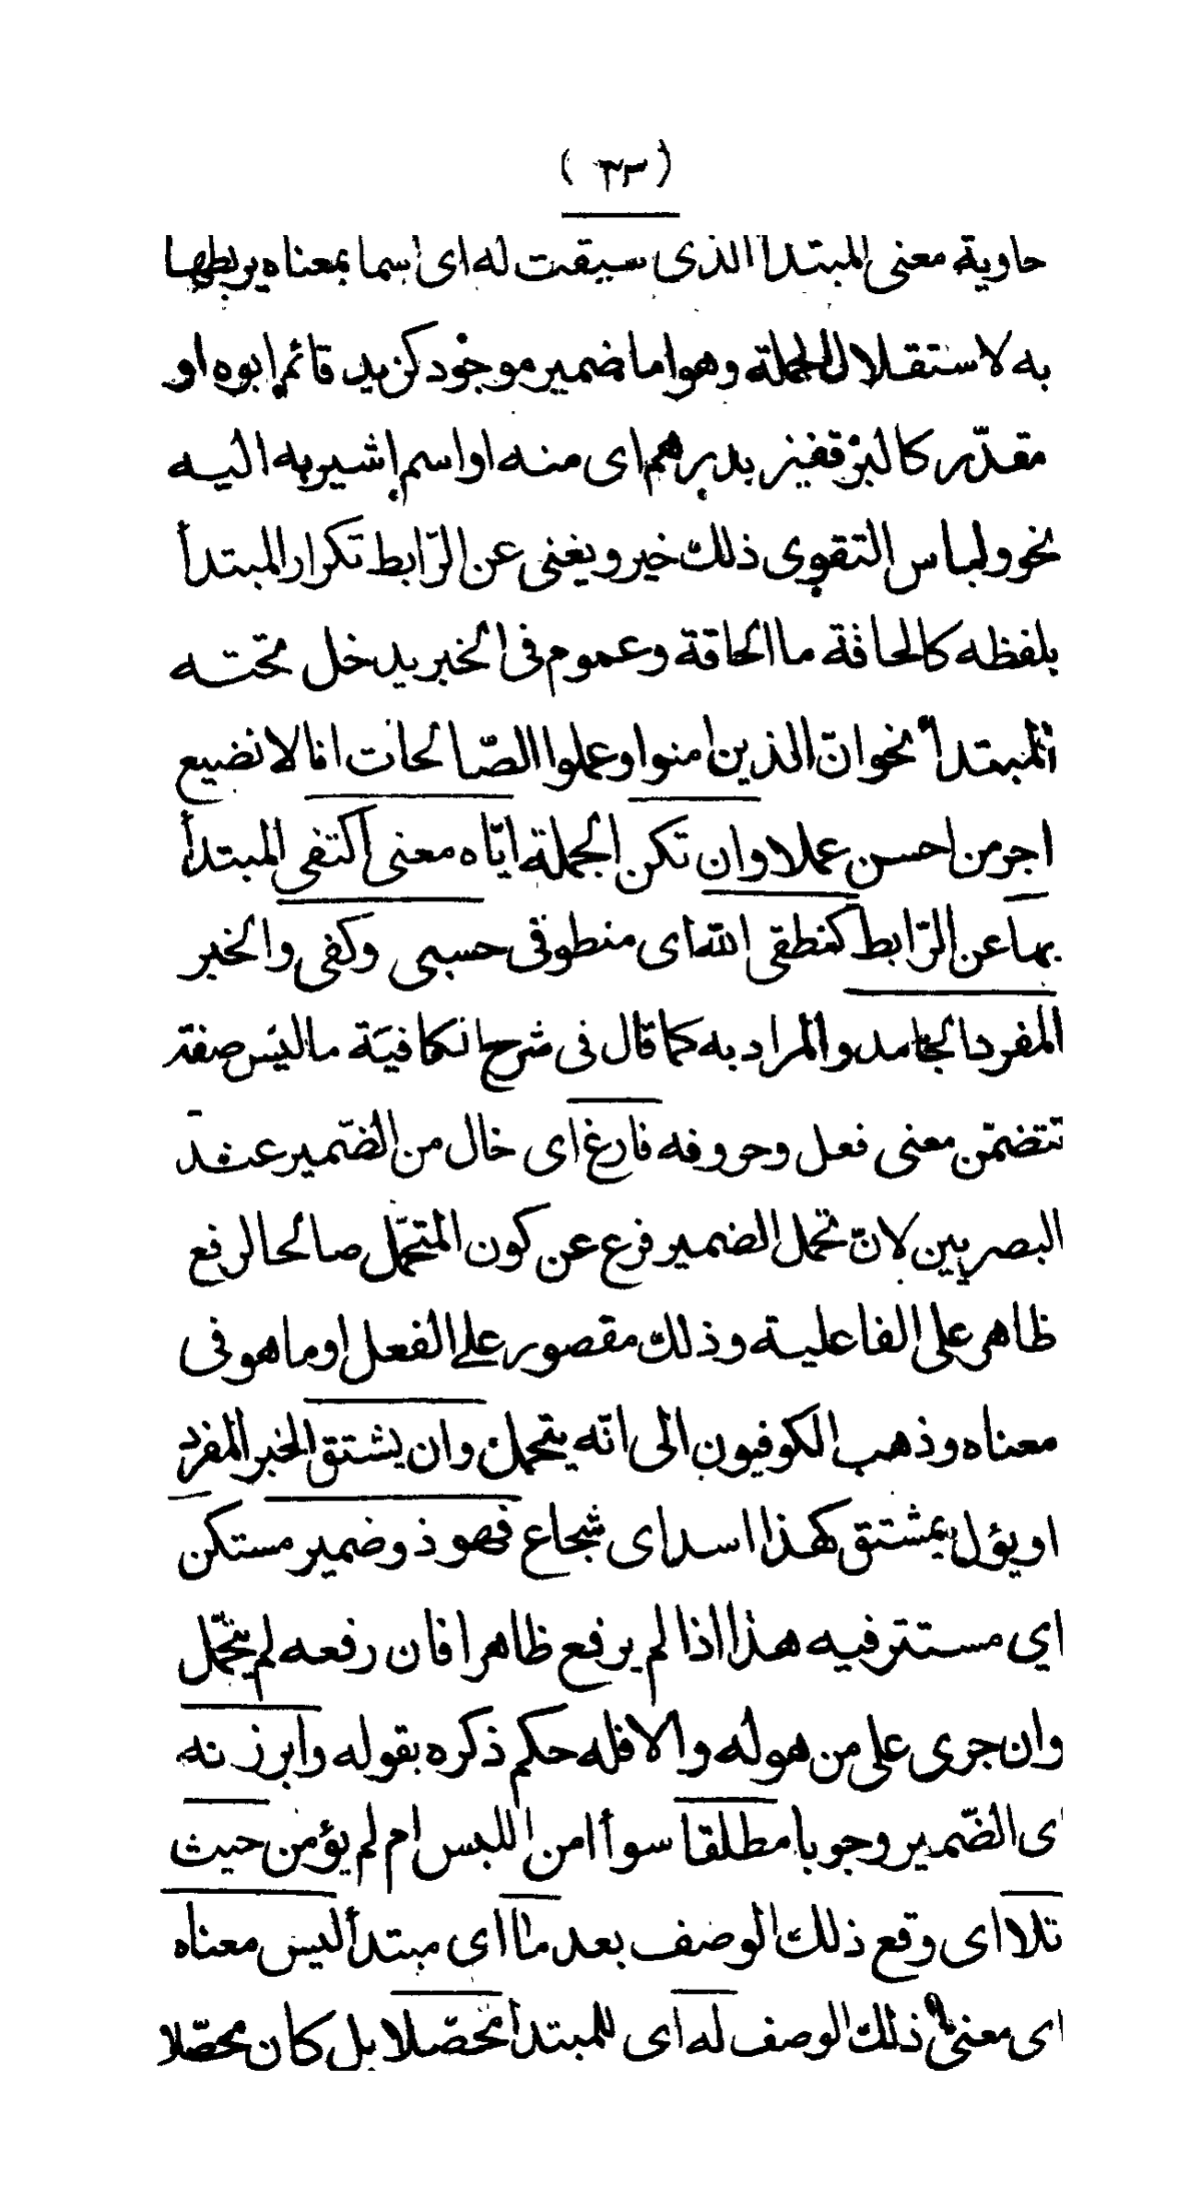 ( ٣٣ )
حاوية معنى المبتدأ الذى سيقت له اى اسما بمعناه يربطها
به لاستقلال الجملة وهو اما ضمير موجود كزيد قائم ابوه او
مقدّر كالبرّ قفيز بدرهم اى منه او اسم اشير به اليه
نحو ولباس التقوى ذلك خير ويغنى عن الرّابط تكرار المبتدأ
بلفظه كالحاقة ما الحاقة وعموم فى الخبر يدخل تحته
المبتدأ نحو انّ الذين امنوا وعملوا الصّالحات انا لا نضيع
اجر من احسن عملا وان تكن الجملة ايّاه معنى اكتفى المبتدأ
بها عن الرّابط كنطقى الله اى منطوقى حسبى وكفى والخبر
المفرد الجامد والمراد به كما قال فى شرح الكافيّة ما ليس صفة
تتضمّن معنى فعل وحروفه فارغ اى خال من الضّمير عند
البصريين لانّ تحمل الضمير فرع عن كون المتحمّل صالحا لرفع
ظاهر على الفاعلية وذلك مقصور على الفعل او ما هو فى
معناه وذهب الكوفيون الى انّه يتحمله وان يشتق الخبر المفرد
او يؤل بمشتق كهذا اسد اى شجاع فهو ذو ضمير مستكن
اي مستتر فيه هذا اذا لم يرفع ظاهرا فان رفعه لم يتحمّل
وان جرى على من هو له والا فله حكم ذكره بقوله وابرزنه
اى الضّمير وجوبا مطلقا سوأ امن اللبس ام لم يؤمن حيث
تلا اى وقع ذلك الوصف بعد ما اى مبتدأ ليس معناه
اى معنى ذلك الوصف له اى للمبتدأ محصّلا بل كان محصّلا